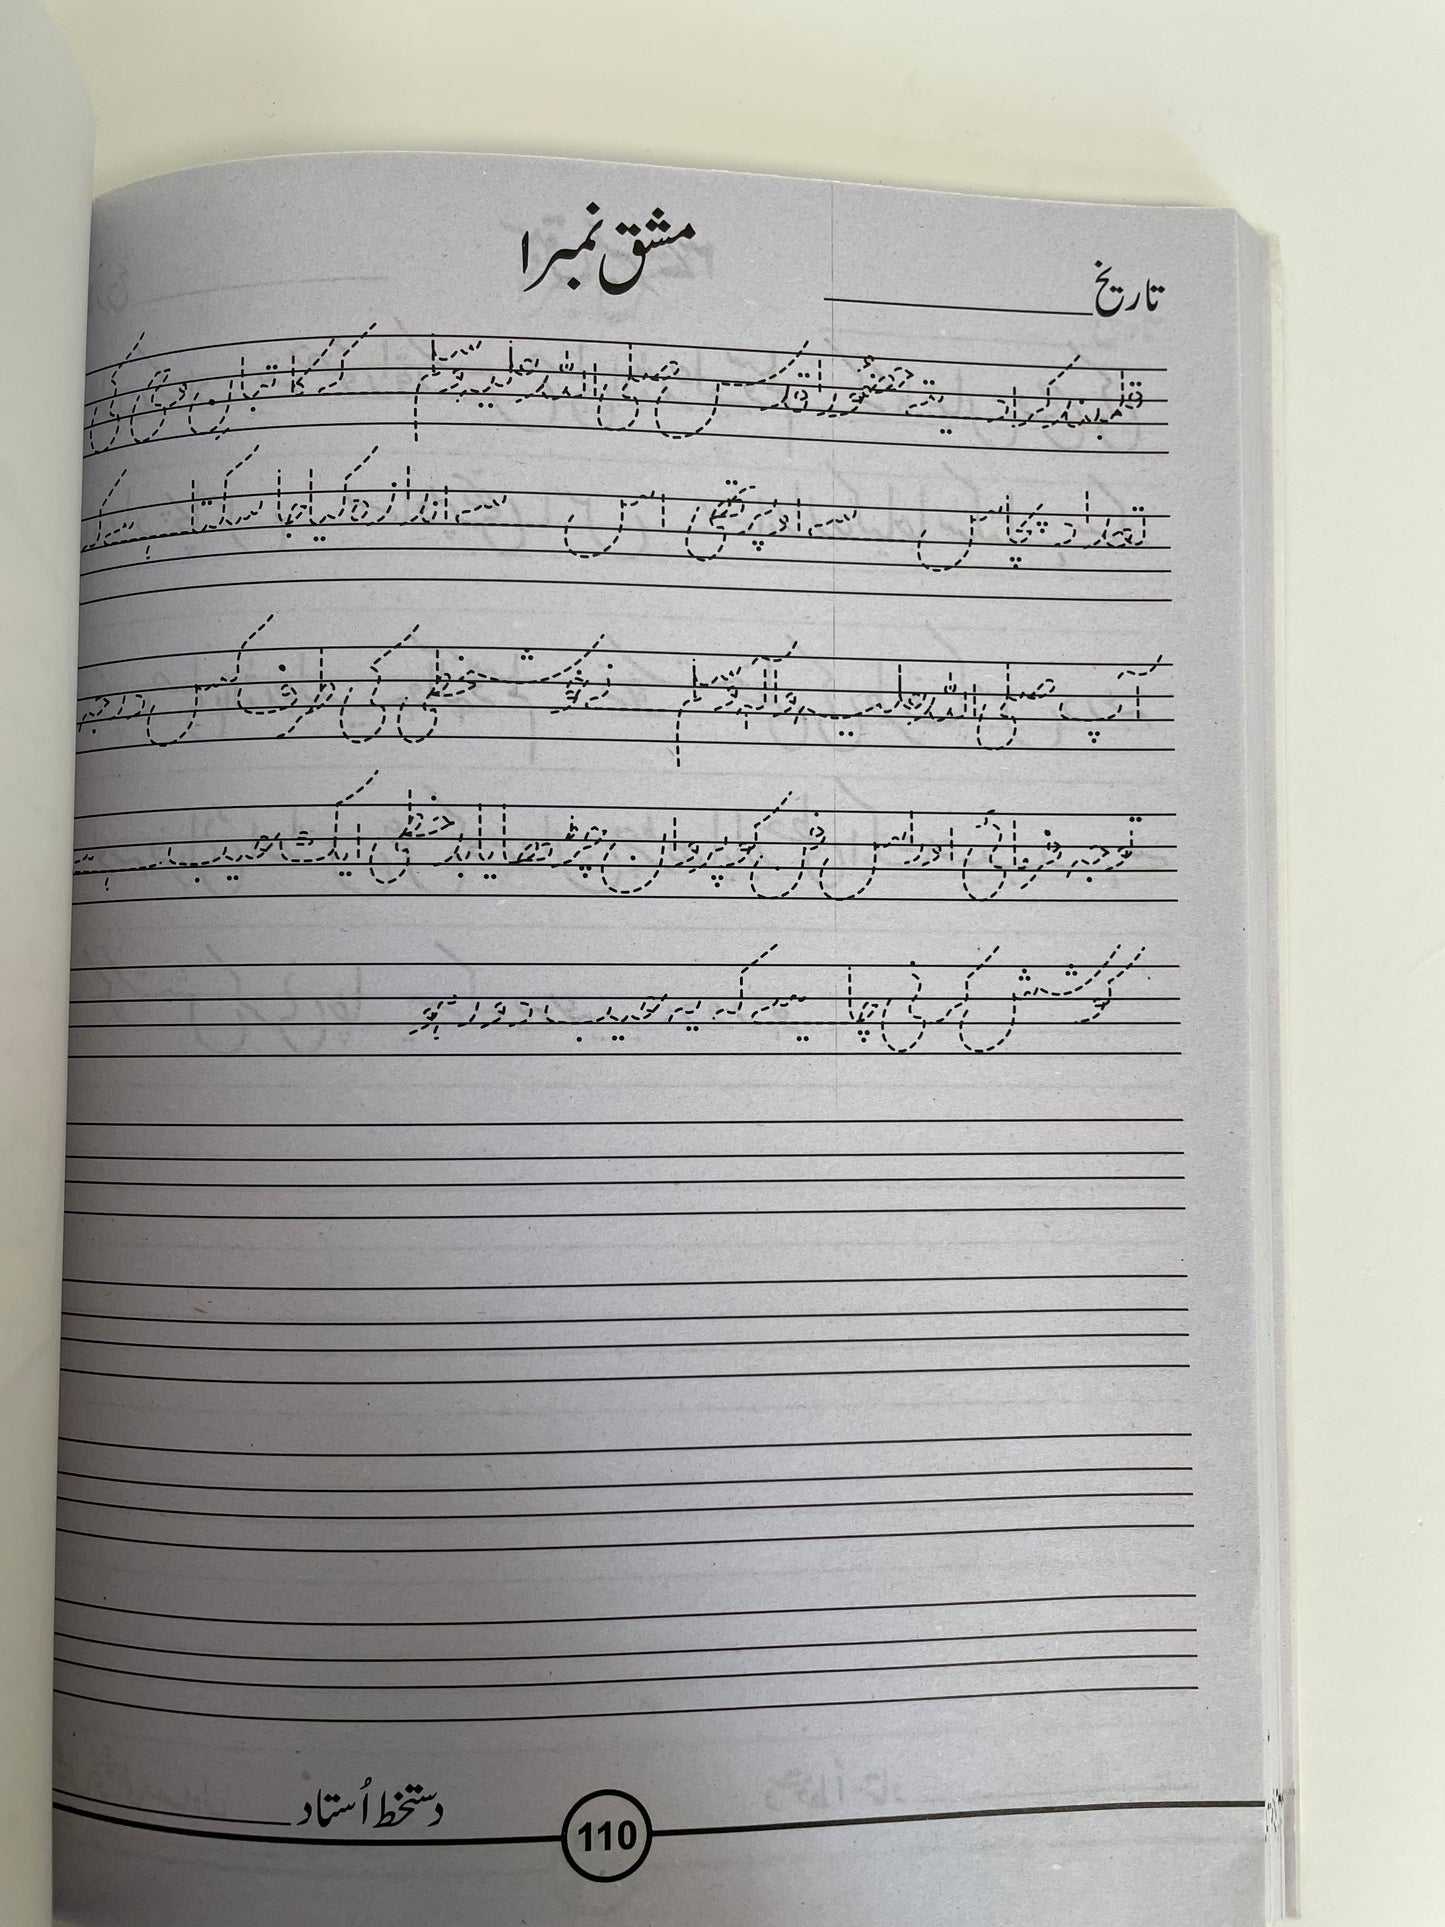 مشق نمبر ۱
تاریخ
قلمبند کرا دیتے حضورِ اقدس صلی اللہ علیہ وسلم کے کاتبان وحی کی
تعداد چالیس سے اوپر تھی اس سے اندازہ کیا جا سکتا ہے کہ
آپ صلی اللہ علیہ وآلہ وسلم نے خوش خطی کی طرف کس درجہ
توجہ فرمائی اور اس فن کو پروان چڑھایا بدخطی ایک عیب ہے
کوشش کرنی چاہیے کہ یہ عیب دور ہو
دستخط اُستاد
110